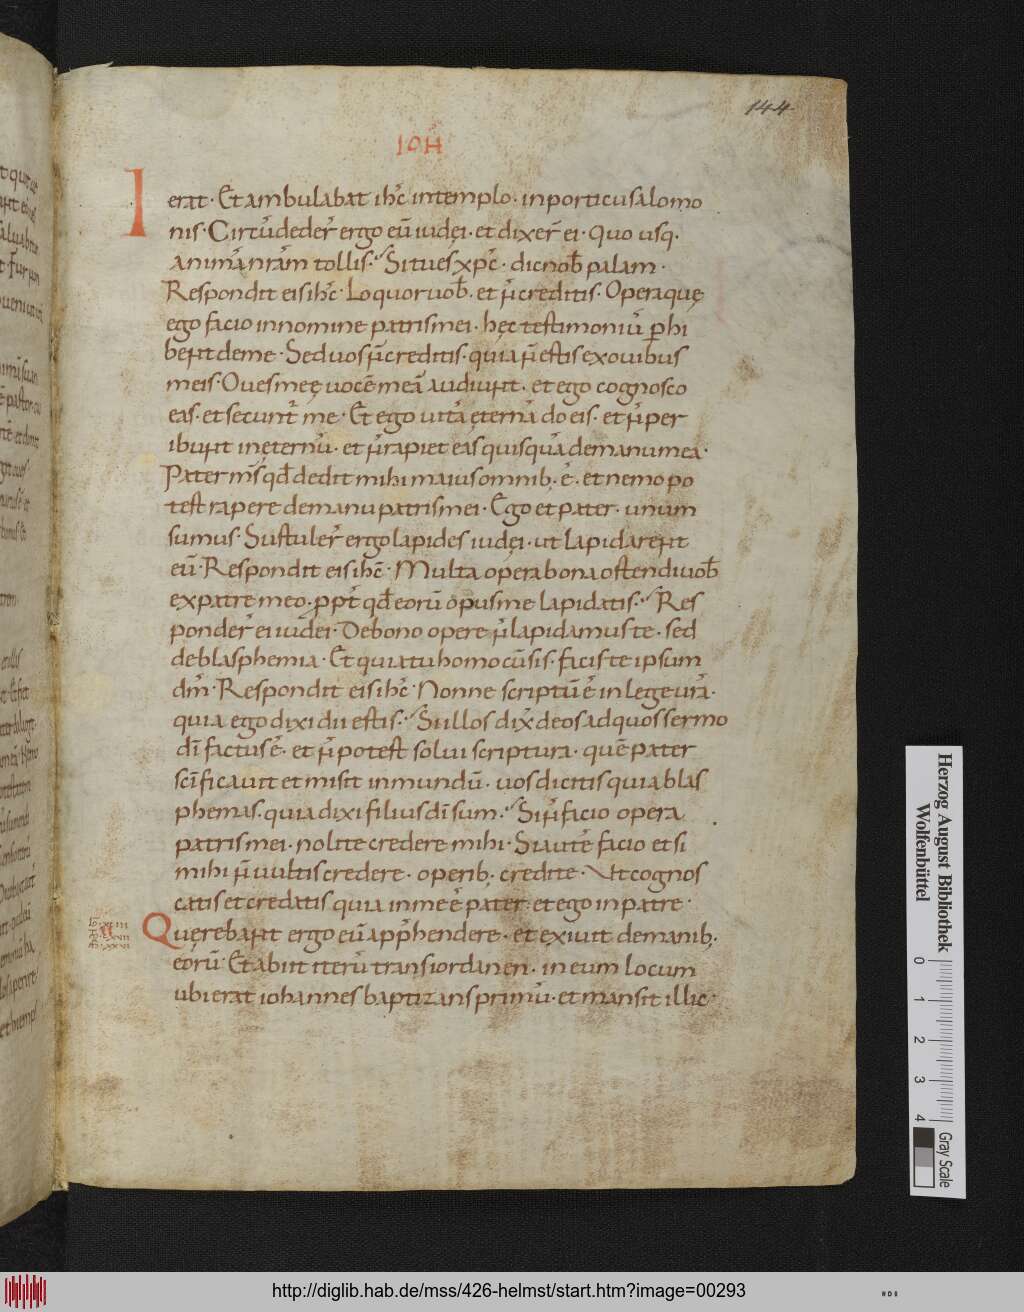 144
IOH
I
erat · Et ambulabat ihc̄ intemplo · inporticusalomo
nis · Circūdeder̄ ergo eū iudęi · et dixer̄ ei · Quo usq·
animā nrām tollis · Situes xpc̄ · dicnob̄ palam ·
Respondit eisihc̄ · Loquoruob̄ · et n̄creditis · Operaquę
ego facio innomine patrismei · hęc testimoniū ꝑhi
bent deme · Seduosn̄creditis · quia n̄ estis exouibus
meis · Ouesmeę uocē meā audiunt · et ego cognosco
eas · et secunt̄ me · Et ego uitā ęternā do eis · et n̄ per
ibunt inęternū · et n̄rapiet eas quisquā demanumea ·
Pater ms̄ qd̄ dedit mihi maiusomnib; ē · et nemo po
test rapere demanu patrismei · Ego et pater · unum
sumus · Sustuler̄ ergo lapides iudęi · ut lapidarent
eū · Respondit eisihc̄ · Multa operabonaostendiuob̄
expatre meo · ppt̄ qd̄ eorū opusme lapidatis · Res
ponder̄ ei iudei · Debono opere n̄ lapidamuste · sed
deblasphemia · Et quiatuhomocūsis · faciste ipsum
dm̄ · Respondit eisihc̄ · Nonne scriptū ē inlegeurā ·
quia ego dixi dii estis · Siillos dix̄ deosadquossermo
dī factus ē · et n̄ potest solui scriptura · quē pater
scīficauit et misit inmundū · uosdicitisquiablas
phemas · quia dixi filiusdī sum · Sin̄facio opera
patrismei · nolite credere mihi · Siautē facio et si
mihi n̄ uultis credere · operib; credite · Ut cognos
catis et credatis quia inme ē pater · et ego inpatre ·
Querebant ergo eū app̄hendere · et exiuit demanib;
eorū · Et abiit iterū transiordanen · in eum locum
ubi erat iohannes baptizansprimū · et mansit illic ·
Herzog August Bibliothek
Wolfenbüttel
0 1 2 3 4
Gray Scale
http://diglib.hab.de/mss/426-helmst/start.htm?image=00293